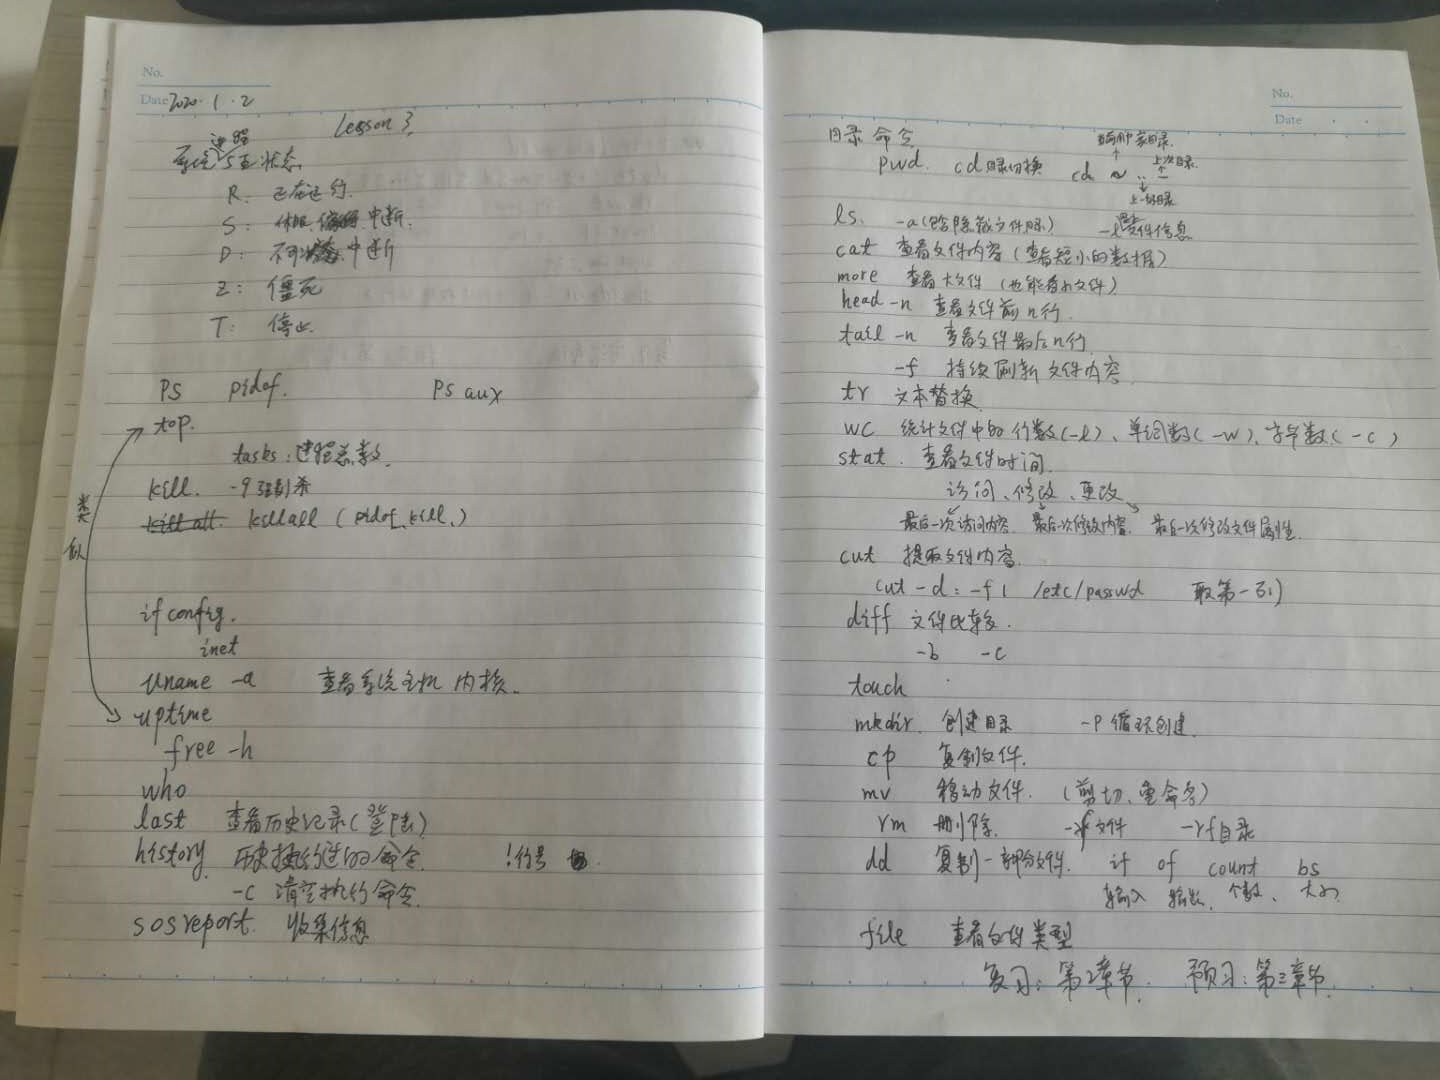 No.
Date 2020.1.2
Lesson 3.
进程
系统 5互状态
R: 正在运行.
S: 休眠 中断.
D: 不可 中断
Z: 僵死
T: 停止.
PS pidof. PS aux
top.
tasks: 进程总数.
kill. -9 强制杀
kill all. killall (pidof、kill、)
类似
ifconfig.
inet
uname -a 查看系统主机 内核.
uptime
free -h
who
last 查看历史记录(登陆)
history 历史执行过的命令. !行号
-c 清空执行命令.
sosreport. 收集信息
No.
Date
目录命令
当前用户家目录.
pwd. cd 目录切换 cd ~ .. -
上次目录.
上一级目录
ls. -a(包含隐藏文件目录) -l 文件信息
cat 查看文件内容(查看短小的数据)
more 查看大文件 (也能看小文件)
head -n 查看文件前n行.
tail -n 查看文件最后n行.
-f 持续刷新文件内容.
tr 文本替换.
wc 统计文件中的行数(-l)、单词数(-w)、字节数(-c)
stat. 查看文件时间.
访问、修改、更改
最后一次访问内容. 最后一次修改内容. 最后一次修改文件属性.
cut 提取文件内容.
cut -d: -f1 /etc/passwd 取第一列
diff 文件比较.
-b -c
touch
mkdir. 创建目录 -p 循环创建.
cp 复制文件.
mv 移动文件. (剪切、重命名)
rm 删除. 文件 -rf目录
dd 复制一部分文件. if of count bs
输入 输出. 个数、大小
file 查看文件类型
复习: 第2章节. 预习: 第三章节.